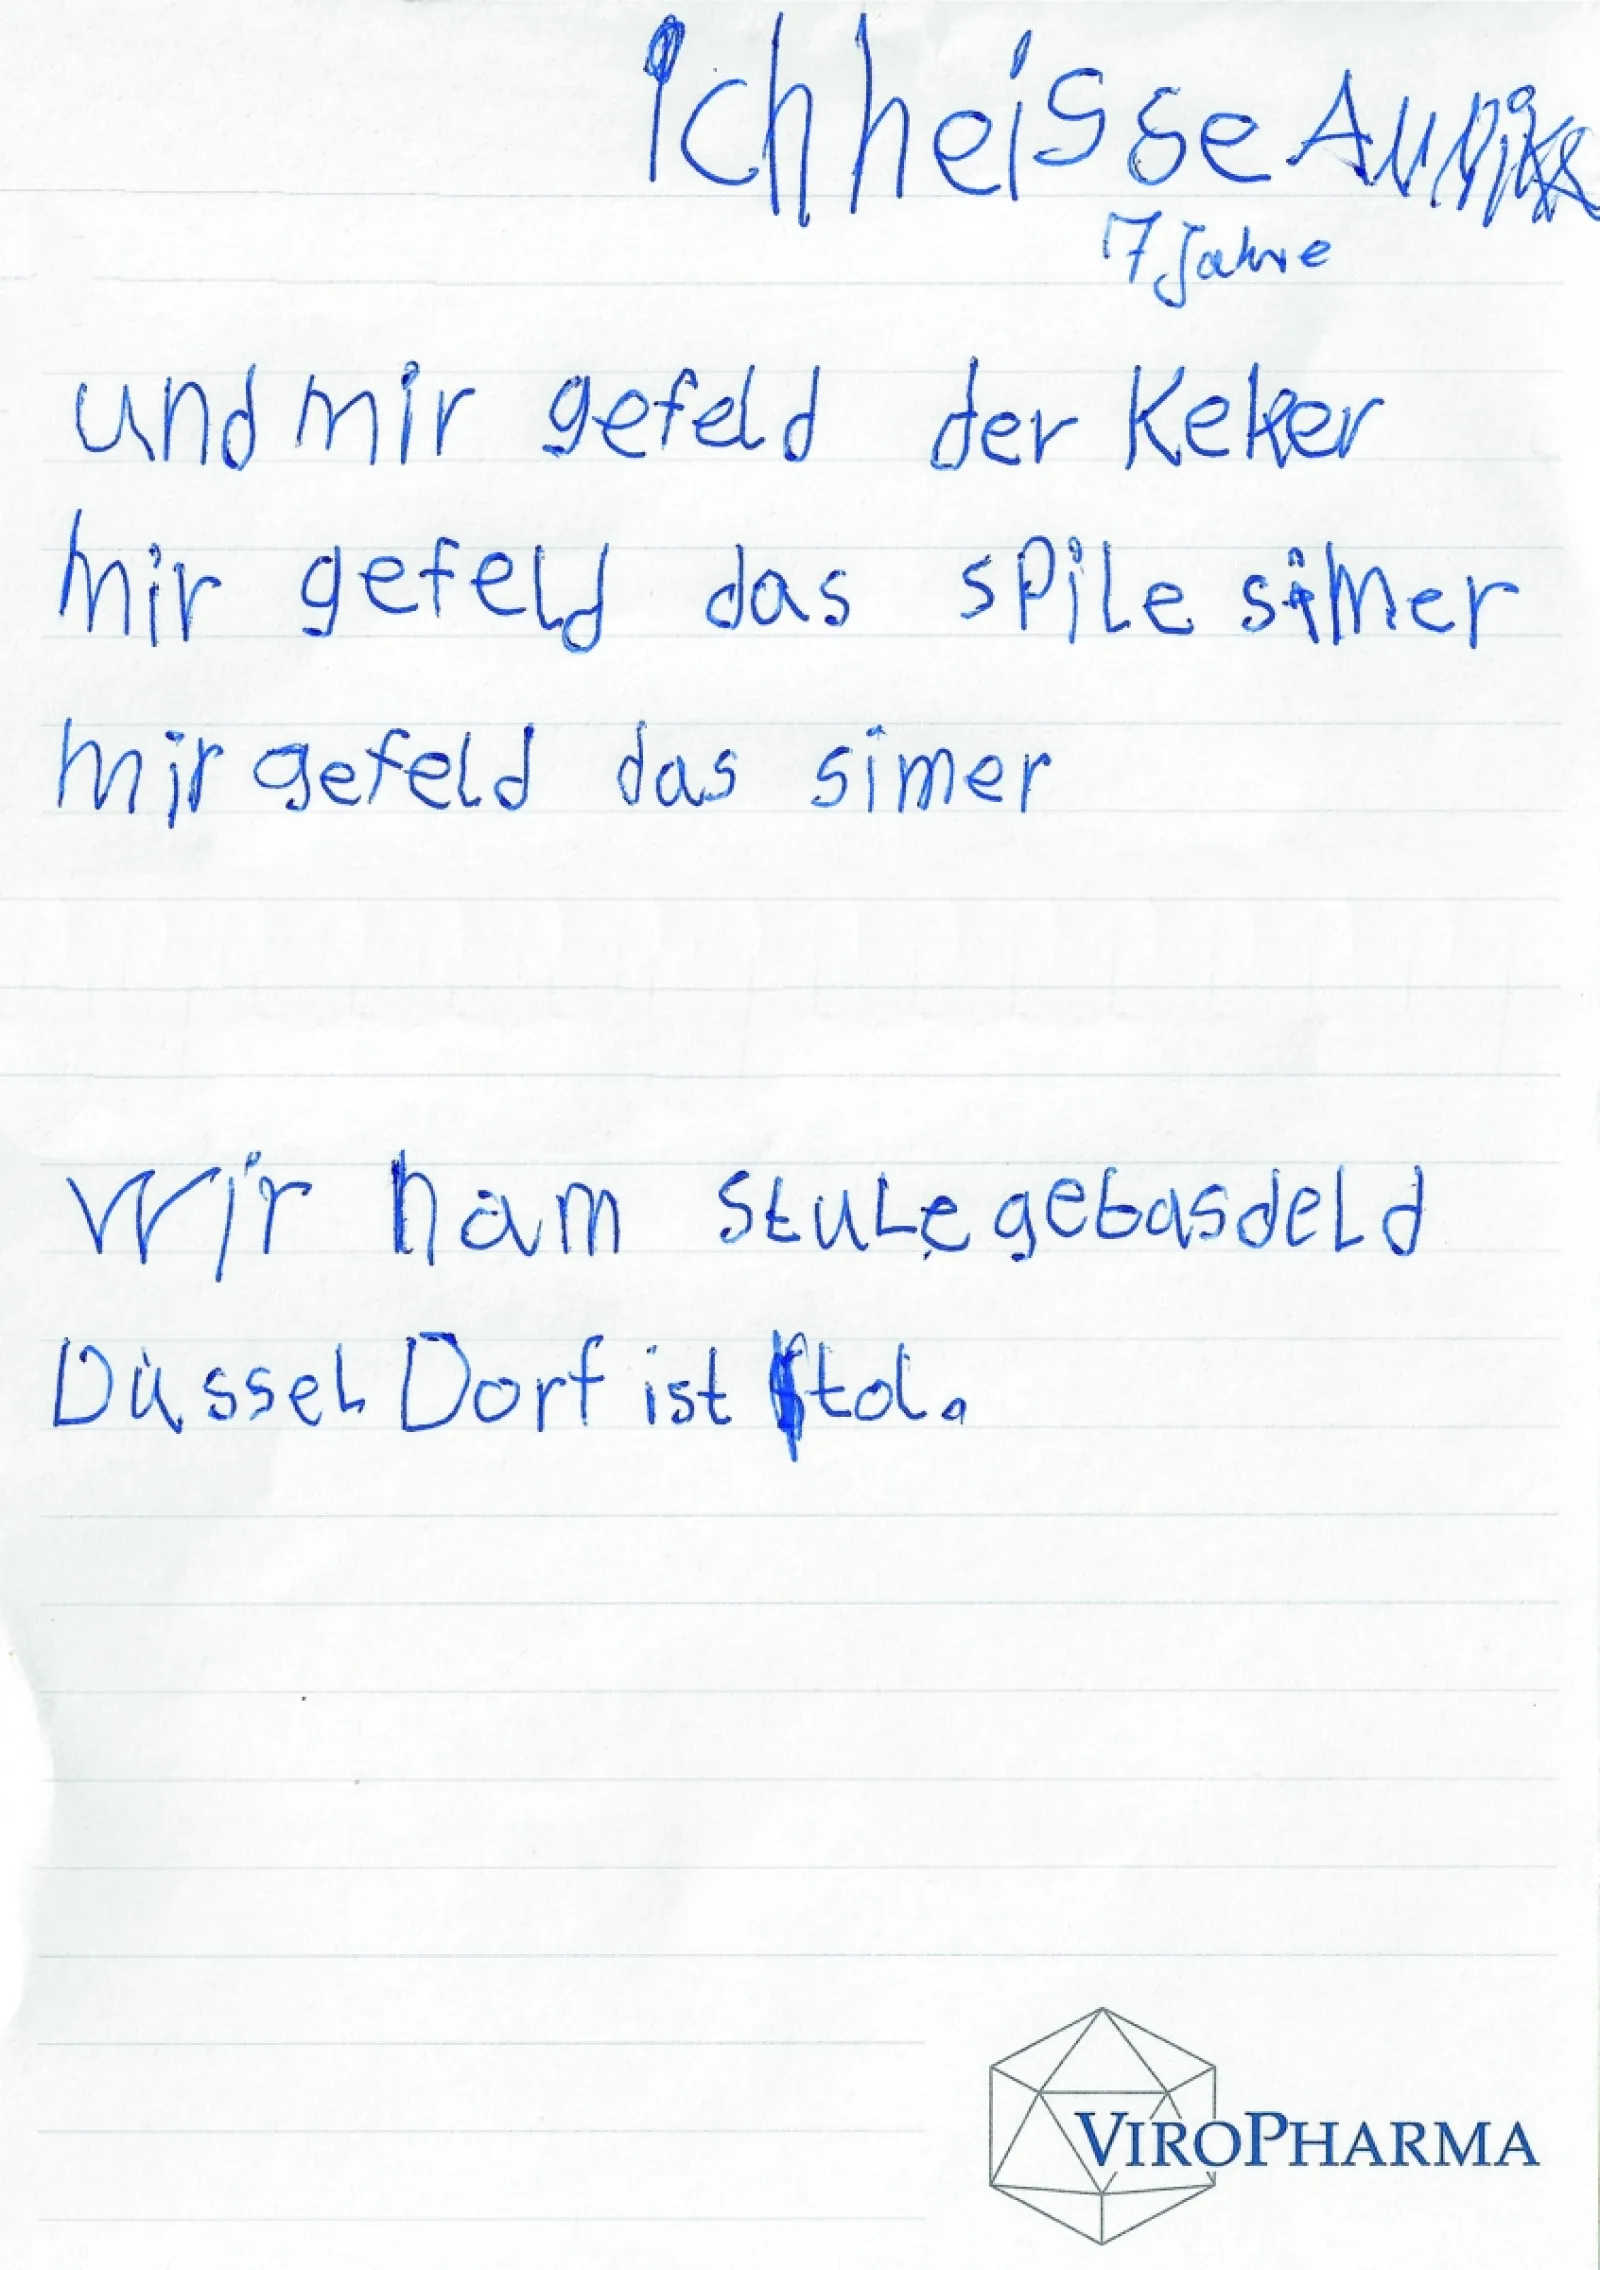 ich heisse
7 Jahre
und mir gefeld der Keker
mir gefeld das spile simer
mir gefeld das simer
wir ham stule gebasdeld
Düssel Dorf ist tol.
VIROPHARMA